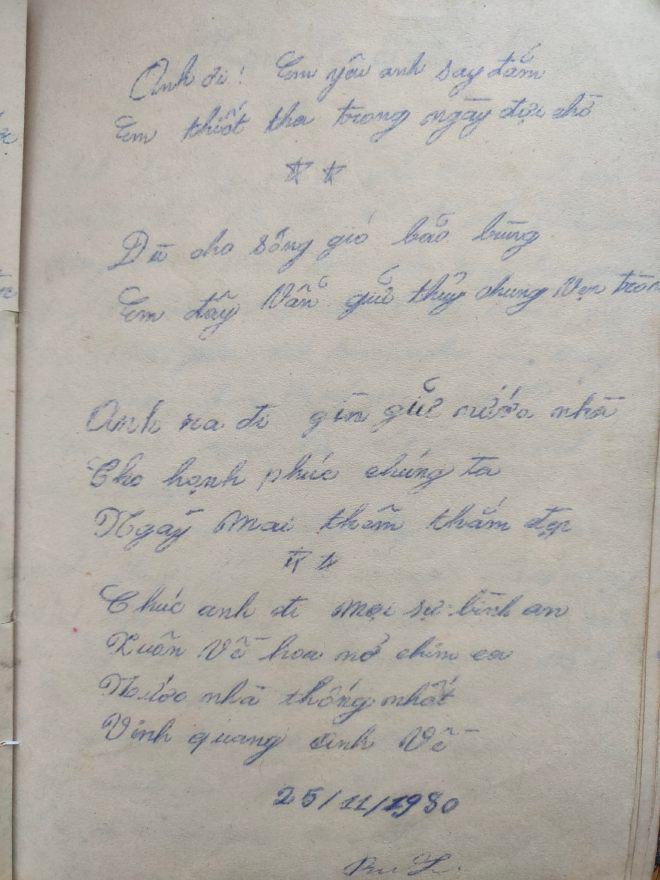 Anh ơi! Em yêu anh say đắm
Em thiết tha trong ngày đợi chờ
Dù cho sông gió bão bùng
Em đây Vẫn giữ thủy chung Vẹn tròn
Anh ra đi gìn giữ nước nhà
Cho hạnh phúc chúng ta
Ngày Mai thêm thắm đẹp
Chúc anh đi mọi sự bình an
Xuân Về hoa nở chim ca
Nước nhà thống nhất
Vinh quang anh Về
25/11/1980